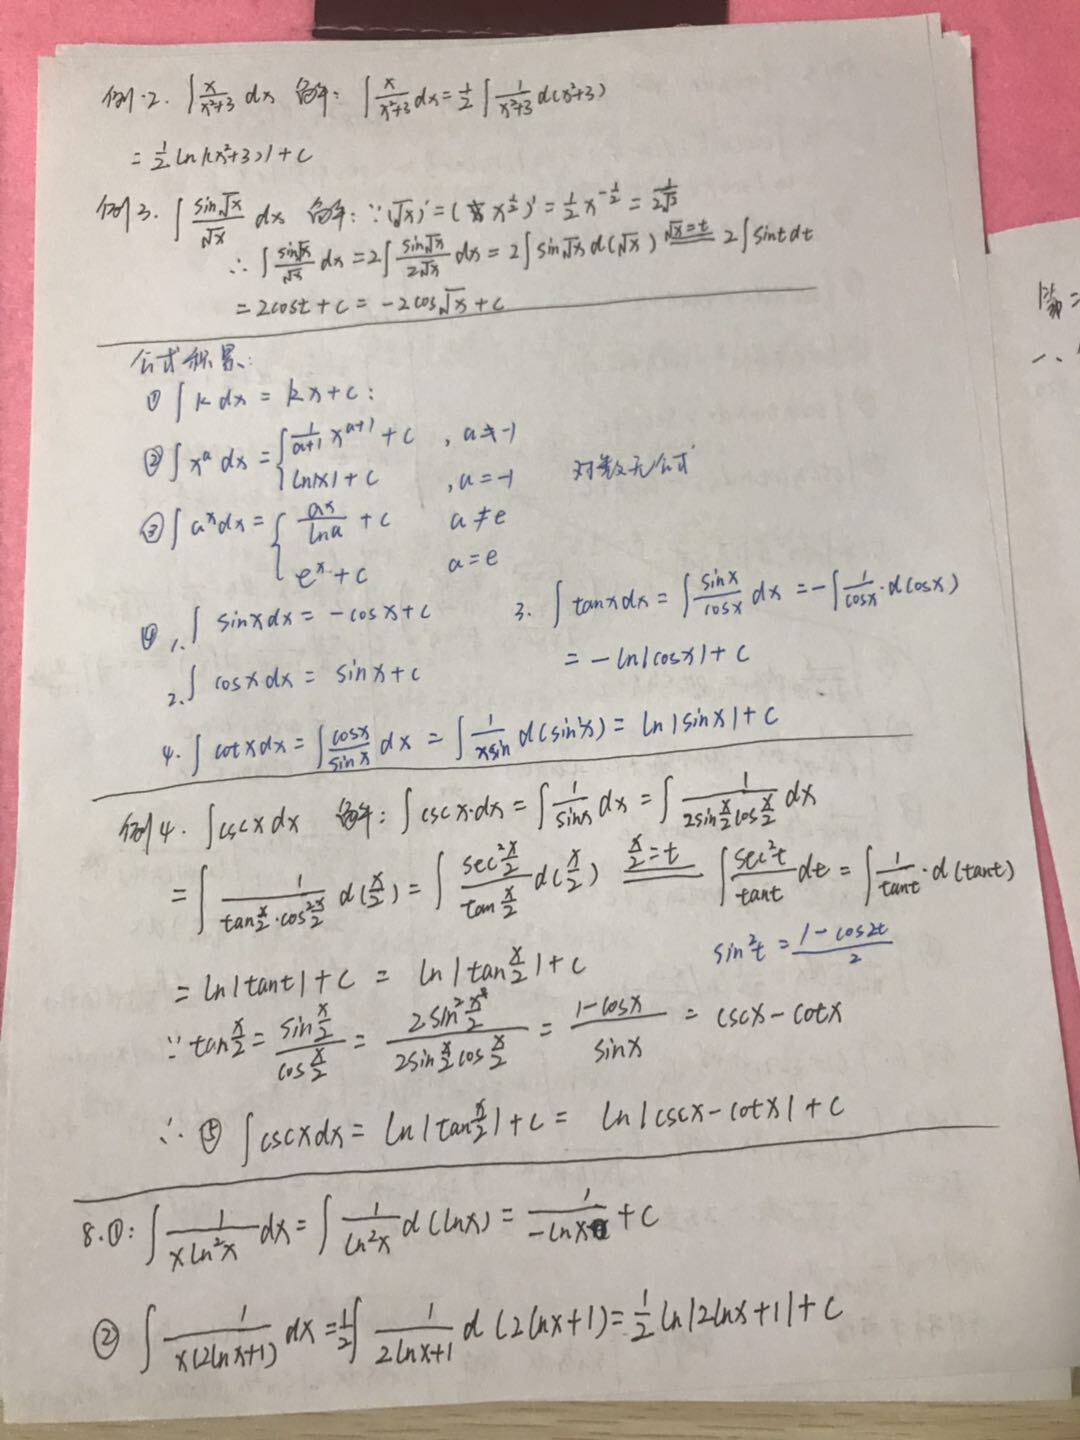 例2. ∫ x/(x²+3) dx 解: ∫ x/(x²+3) dx = 1/2 ∫ 1/(x²+3) d(x²+3)
= 1/2 ln|(x²+3)|+c
例3. ∫ sin√x/√x dx 解: ∵(√x)' = (x^(1/2))' = 1/2 x^(-1/2) = 1/(2√x)
∴ ∫ sin√x/√x dx = 2∫ sin√x/(2√x) dx = 2∫ sin√x d(√x) =(√x=t)= 2∫ sint dt
= 2cost + c = -2cos√x + c
公式积累:
① ∫ k dx = kx+c:
② ∫ x^a dx = { 1/(a+1) x^(a+1) + c , a≠-1
ln|x| + c , a=-1 对数无公式
③ ∫ a^x dx = { a^x/lna + c a≠e
e^x + c a=e
④ 1. ∫ sinxdx = -cosx+c 3. ∫ tanxdx = ∫ sinx/cosx dx = -∫ 1/cosx · d(cosx)
= -ln|cosx| + c
2. ∫ cosxdx = sinx+c
4. ∫ cotxdx = ∫ cosx/sinx dx = ∫ 1/xsin d(sinx) = ln|sinx| + c
例4. ∫ cscxdx 解: ∫ cscx·dx = ∫ 1/sinx dx = ∫ 1/(2sin x/2 cos x/2) dx
= ∫ 1/(tan x/2 · cos² x/2) d(x/2) = ∫ (sec² x/2)/(tan x/2) d(x/2) =(x/2=t)= ∫ sec²t/tant dt = ∫ 1/tant · d(tant)
sin²t = (1-cos2t)/2
= ln|tant| + c = ln|tan x/2| + c
∵ tan x/2 = (sin x/2)/(cos x/2) = (2sin² x/2)/(2sin x/2 cos x/2) = (1-cosx)/sinx = cscx-cotx
∴ ⑤ ∫ cscxdx = ln|tan x/2| + c = ln|cscx-cotx| + c
8. ①: ∫ 1/(xln²x) dx = ∫ 1/ln²x d(lnx) = 1/(-lnx) + c
② ∫ 1/(x(2lnx+1)) dx = 1/2 ∫ 1/(2lnx+1) d(2lnx+1) = 1/2 ln|2lnx+1| + c